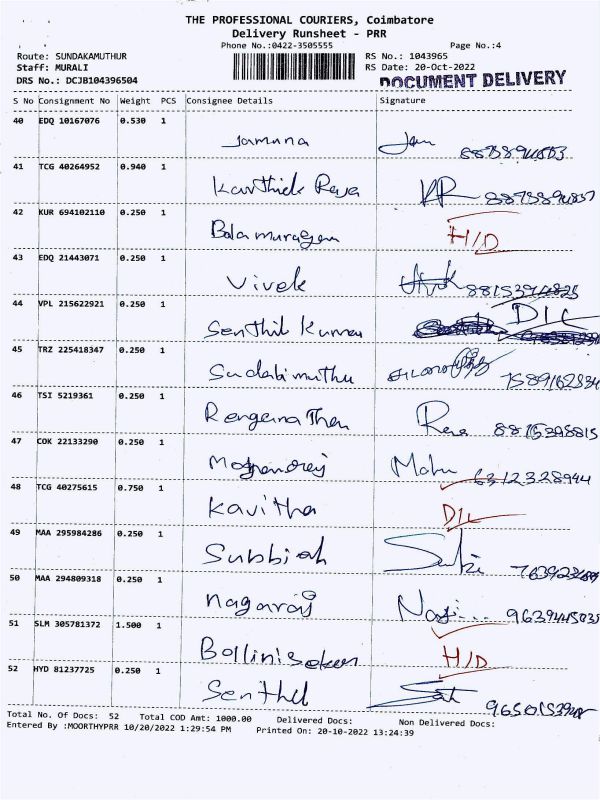 THE PROFESSIONAL COURIERS, Coimbatore
Delivery Runsheet - PRR
Phone No.:0422-3505555 Page No.:4
Route: SUNDAKAMUTHUR RS No.: 1043965
Staff: MURALI RS Date: 20-Oct-2022
DRS No.: DCJB104396504 DOCUMENT DELIVERY
S No Consignment No Weight PCS Consignee Details Signature
40 EDQ 10167076 0.530 1
Jamuna
41 TCG 40264952 0.940 1
Karthick Raja KR
42 KUR 694102110 0.250 1
Balamurugan H/D
43 EDQ 21443071 0.250 1
Vivek
44 VPL 215622921 0.250 1 D/L
Senthil Kumar
45 TRZ 225418347 0.250 1
Sudalimuthu 7589162834
46 TSI 5219361 0.250 1
Renganathan
47 COK 22133290 0.250 1
6312328944
48 TCG 40275615 0.750 1
Kavitha D/L
49 MAA 295984286 0.250 1
Subbiah
50 MAA 294809318 0.250 1
Nagaraj
51 SLM 305781372 1.500 1
H/D
52 HYD 81237725 0.250 1
Senthil
Total No. Of Docs: 52 Total COD Amt: 1000.00 Delivered Docs: Non Delivered Docs:
Entered By :MOORTHYPRR 10/20/2022 1:29:54 PM Printed On: 20-10-2022 13:24:39